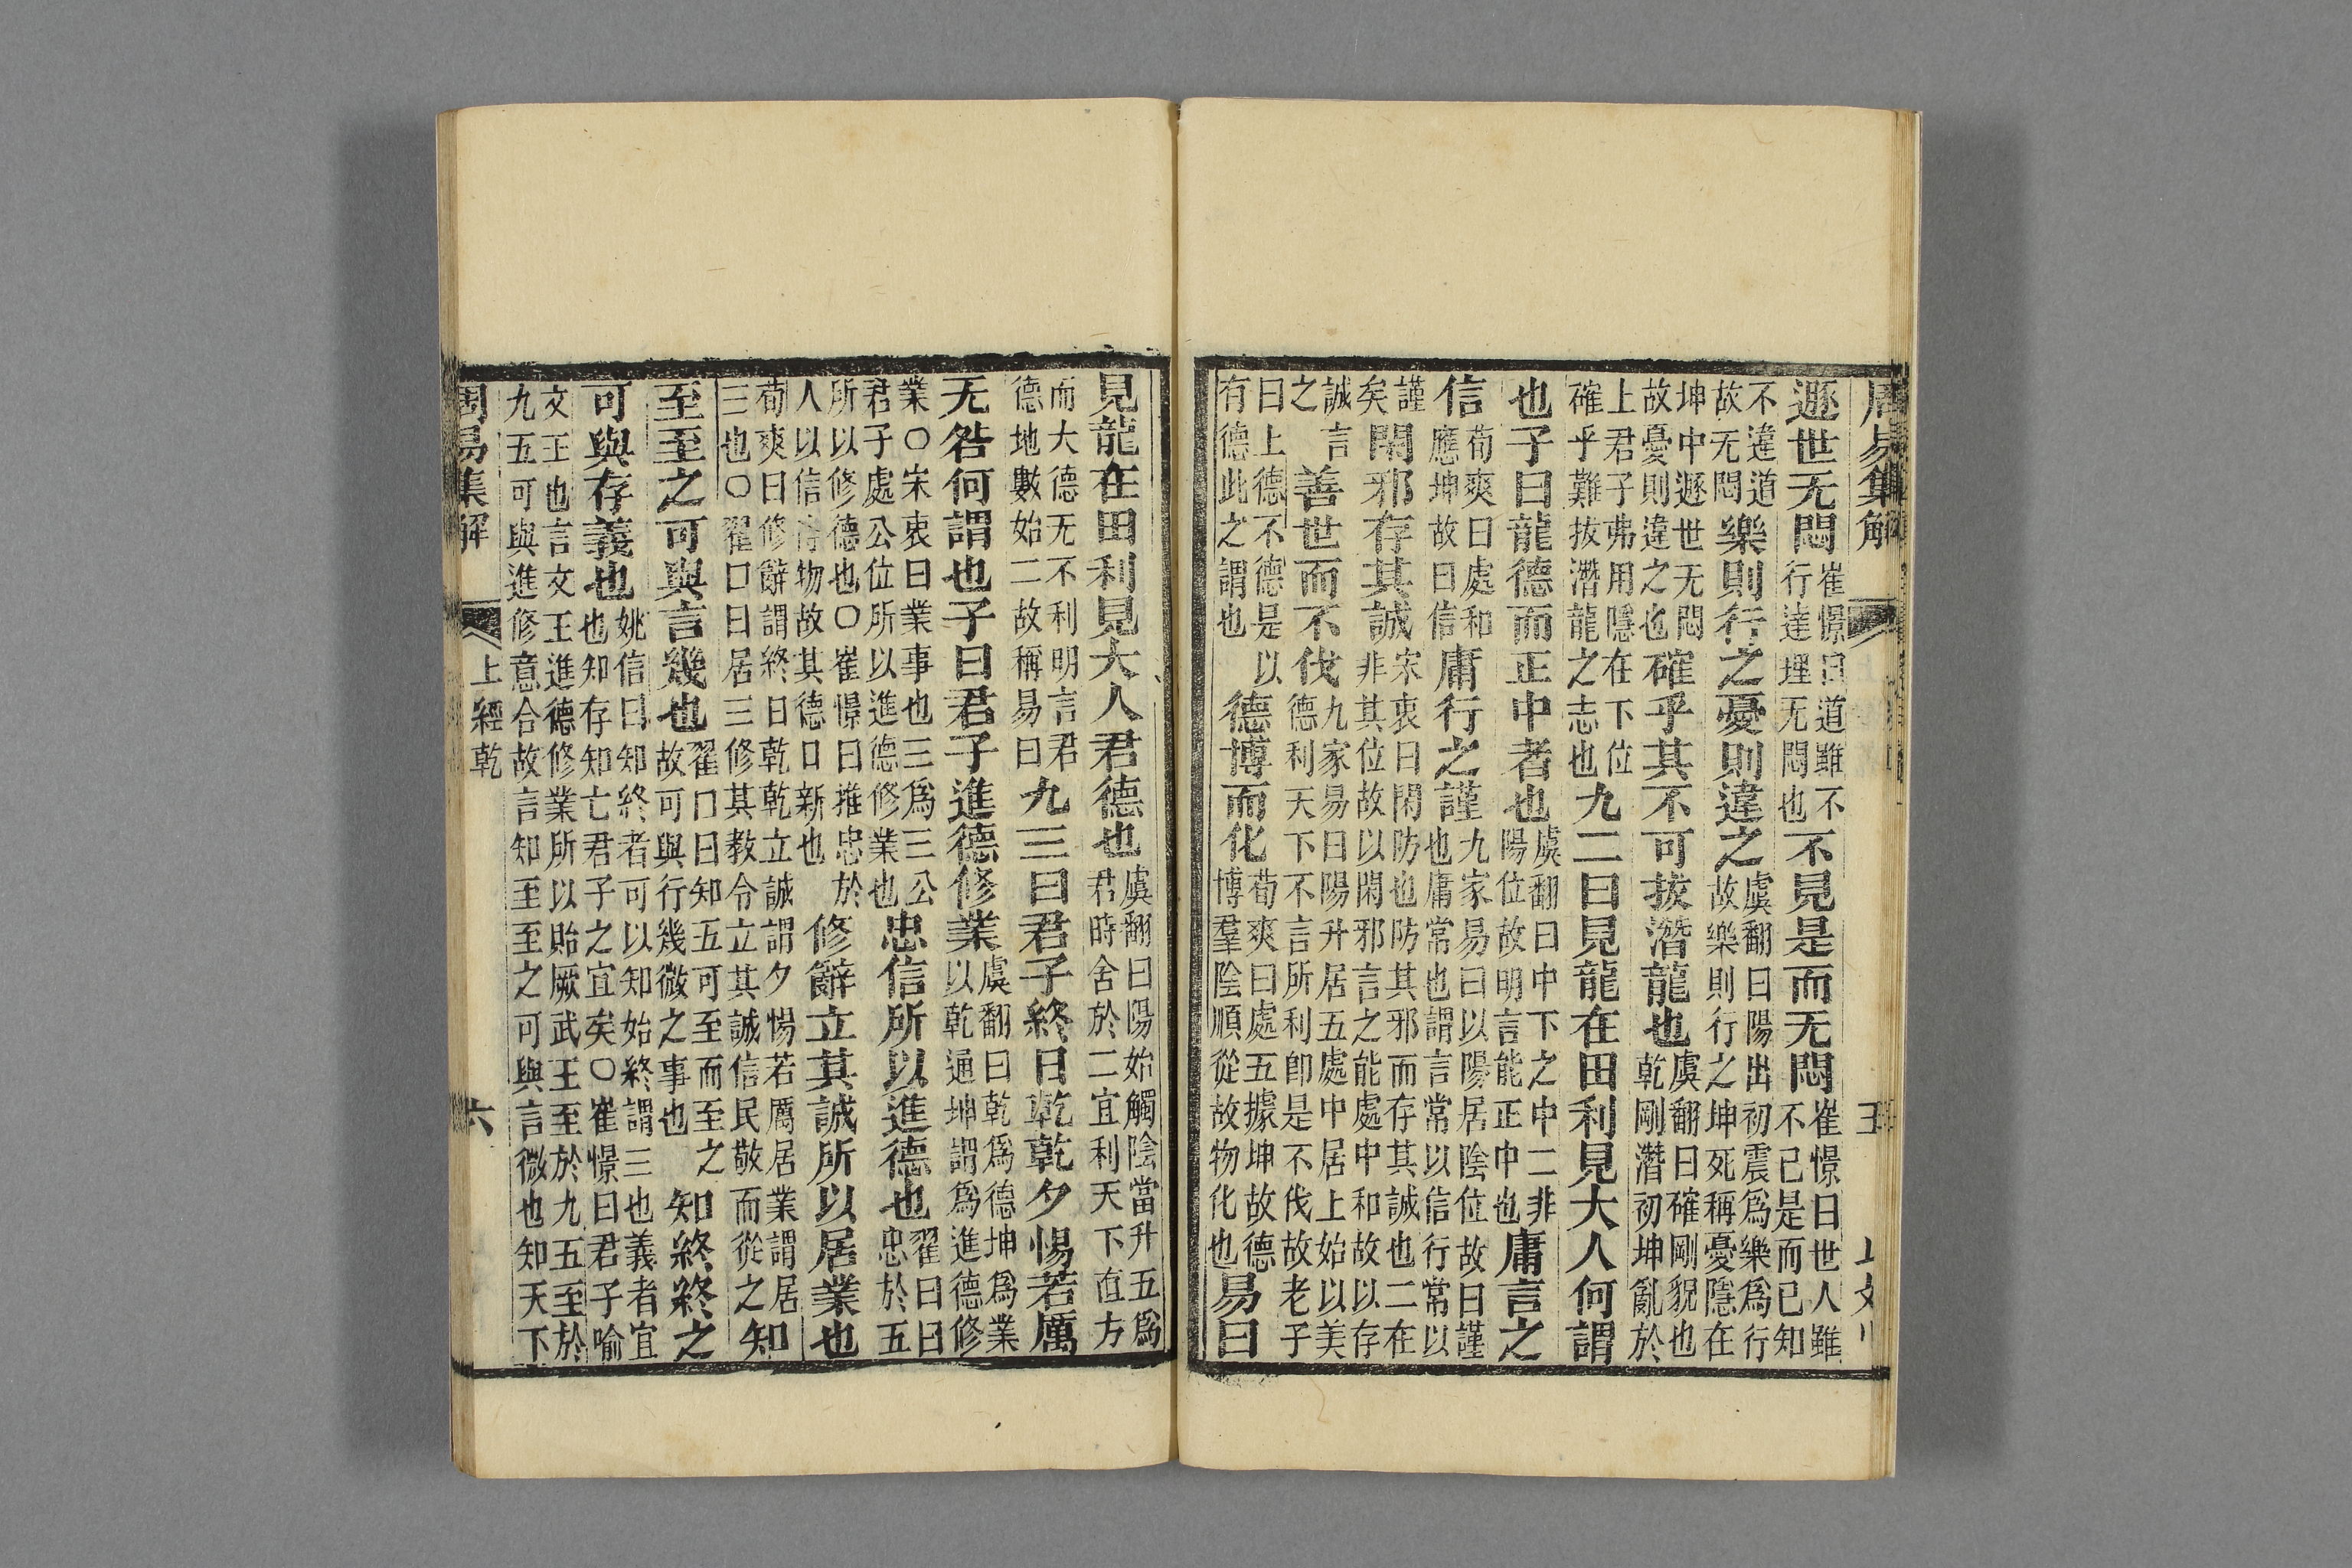 周易集解
遯世无悶崔憬曰道雖不行達理无悶也不見是而无悶崔憬曰世人雖不已是而已知
不違道故无悶樂則行之憂則違之虞翻曰陽出初震爲樂爲行故樂則行之坤死稱憂隱在
坤中遯世无悶故憂則違之也確乎其不可拔潛龍也虞翻曰確剛貌也乾剛潛初坤亂於
上君子弗用隱在下位確乎難拔潛龍之志也九二曰見龍在田利見大人何謂
也子曰龍德而正中者也虞翻曰中下之中二非陽位故明言能正中也庸言之
信荀爽曰處和應坤故曰信庸行之謹九家易曰以陽居陰位故曰謹也庸常也謂言常以信行常以
謹矣閑邪存其誠宋衷曰閑防也防其邪而存其誠也二在非其位故以閑邪言之能處中和故以存
誠言之善世而不伐九家易曰陽升居五處中居上始以美德利天下不言所利卽是不伐故老子
曰上德不德是以有德此之謂也德博而化荀爽曰處五據坤故德博羣陰順從故物化也易曰
見龍在田利見大人君德也虞翻曰陽始觸陰當升五爲君時舍於二宜利天下直方
而大德无不利明言君德地數始二故稱易曰九三曰君子終日乾乾夕惕若厲
无咎何謂也子曰君子進德修業虞翻曰乾爲德坤爲業以乾通坤謂爲進德修
業○宋衷曰業事也三爲三公君子處公位所以進德修業也忠信所以進德也翟曰曰忠於五
所以修德也○崔憬曰推忠於人以信待物故其德口新也修辭立其誠所以居業也
荀爽曰修辭謂終日乾乾立誠謂夕惕若厲居業謂居三也○翟口曰居三修其教令立其誠信民敬而從之知
至至之可與言幾也翟口曰知五可至而至之故可與行幾微之事也知終終之
可與存義也姚信曰知終者可以知始終謂三也義者宜也知存知亡君子之宜矣○崔憬曰君子喻
文王也言文王進德修業所以貽厥武王至於九五至於九五可與進修意合故言知至至之可與言微也知天下
周易集解 上經乾 六